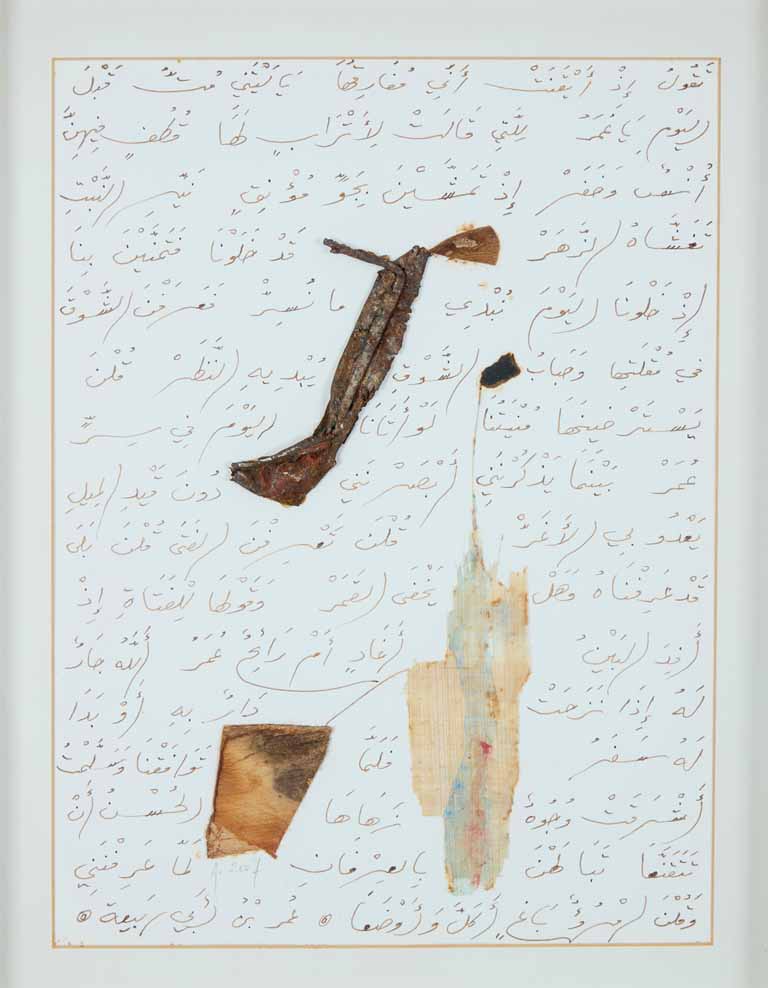 تَقُولُ إِذْ أَيْقَنَتْ أَنِّي مُفَارِقُهَا يَا لَيْتَنِي مُتُّ قَبْلَ
اليَوْمِ يَا عُمَرُ لِلَّتِي قَالَتْ لِأَتْرَابٍ لَهَا قُطُفٍ فِيهِنَّ
أُنْسٌ وَخَفَرْ إِذْ تَمَشَّيْنَ بِجَوٍّ مُؤْنِقٍ نَيِّرِ النَّبْتِ
تَغَشَّاهُ الزَّهَرْ قَدْ خَلَوْنَا فَتَمَنَّيْنَ بِنَا
إِذْ خَلَوْنَا اليَوْمَ نُبْدِي مَا نُسِرّْ فَعَرَفْنَ الشَّوْقَ
فِي مُقْلَتِهَا وَحَبَابُ الشَّوْقِ يُبْدِيهِ النَّظَرْ قُلْنَ
يَسْتَرْضِينَهَا مُنْيَتُنَا لَوْ أَتَانَا اليَوْمَ فِي سِرٍّ
عُمَرْ بَيْنَمَا يَذْكُرْنَنِي أَبْصَرْنَنِي دُونَ قَيْدِ المِيلِ
يَعْدُو بِي الأَغَرّْ قُلْنَ تَعْرِفْنَ الفَتَى قُلْنَ بَلَى
قَدْ عَرِفْنَاهُ وَهَلْ يَخْفَى القَمَرْ وَقَوْلَهَا لِلْفَتَاةِ إِذْ
أَفِدَ البَيْنُ أَغَادٍ أَمْ رَائِحٌ عُمَرُ أَللهُ جَارٌ
لَهُ إِذَا نَزَحَتْ دَارٌ بِهِ أَوْ بَدَا
لَهُ سَفَرُ فَلَمَّا تَوَاقَفْنَا وَسَلَّمْتُ
أَشْرَقَتْ وُجُوهٌ زَهَاهَا الحُسْنُ أَنْ
تَتَقَنَّعَا تَبَالَهْنَ بِالعِرْفَانِ لَمَّا عَرِفْنَنِي
وَقُلْنَ امْرُؤٌ بَاغٍ أَكَلَّ وَأَوْضَعَا عُمَرُ بْنُ أَبِي رَبِيعَة